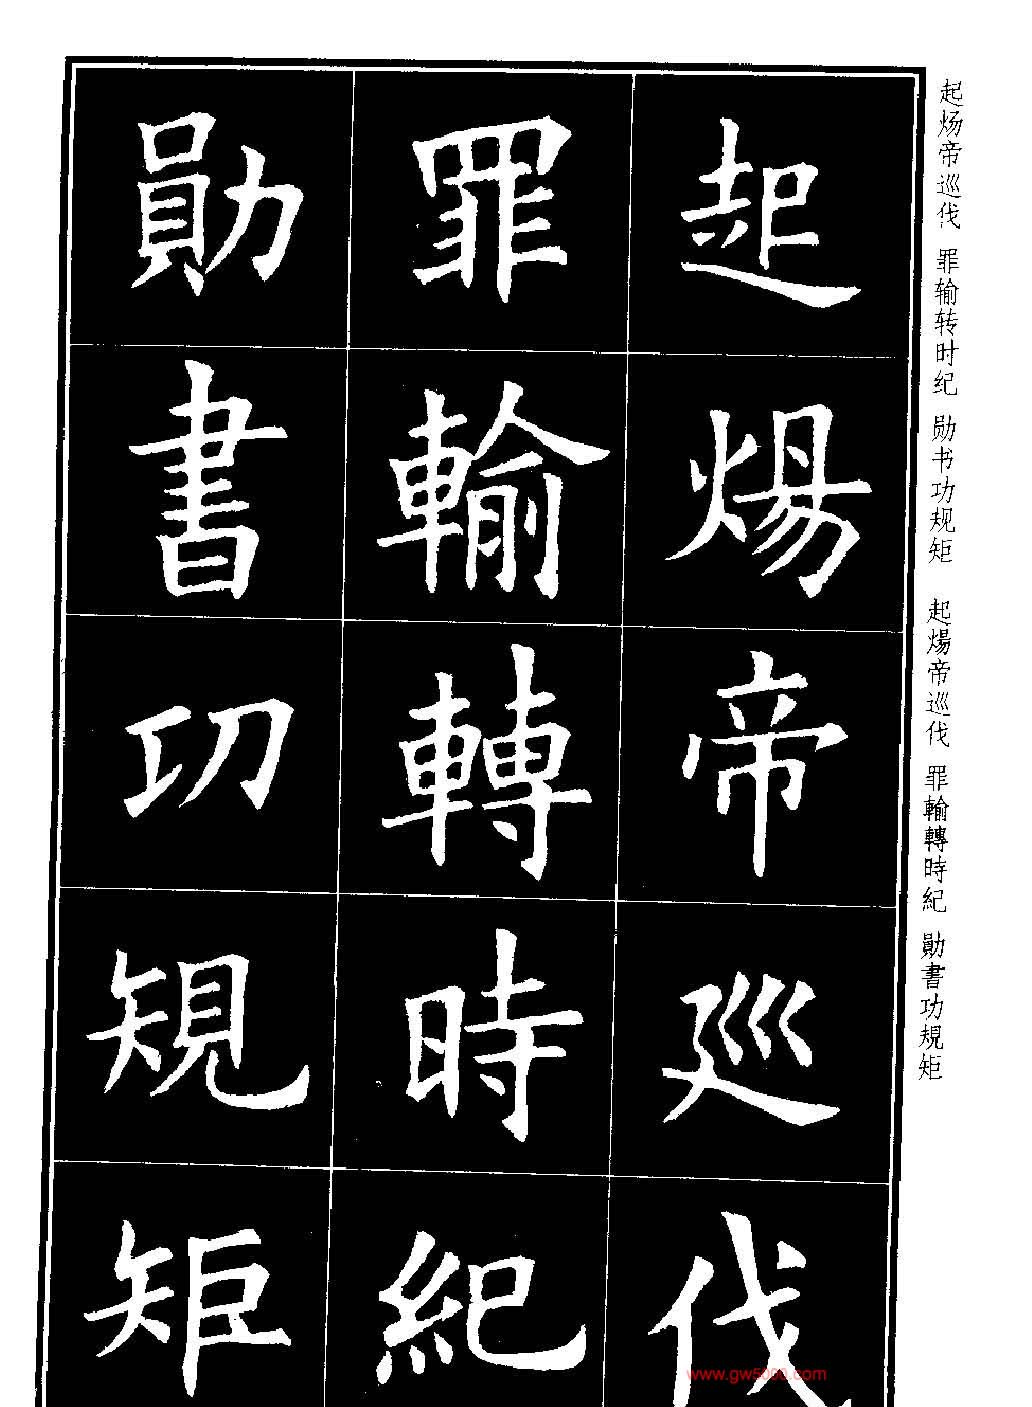 起煬帝巡伐
罪輸轉時紀
勛書功規矩
起炀帝巡伐 罪输转时纪 勋书功规矩 起煬帝巡伐 罪輸轉時紀 勛書功規矩
www.gw5000.com